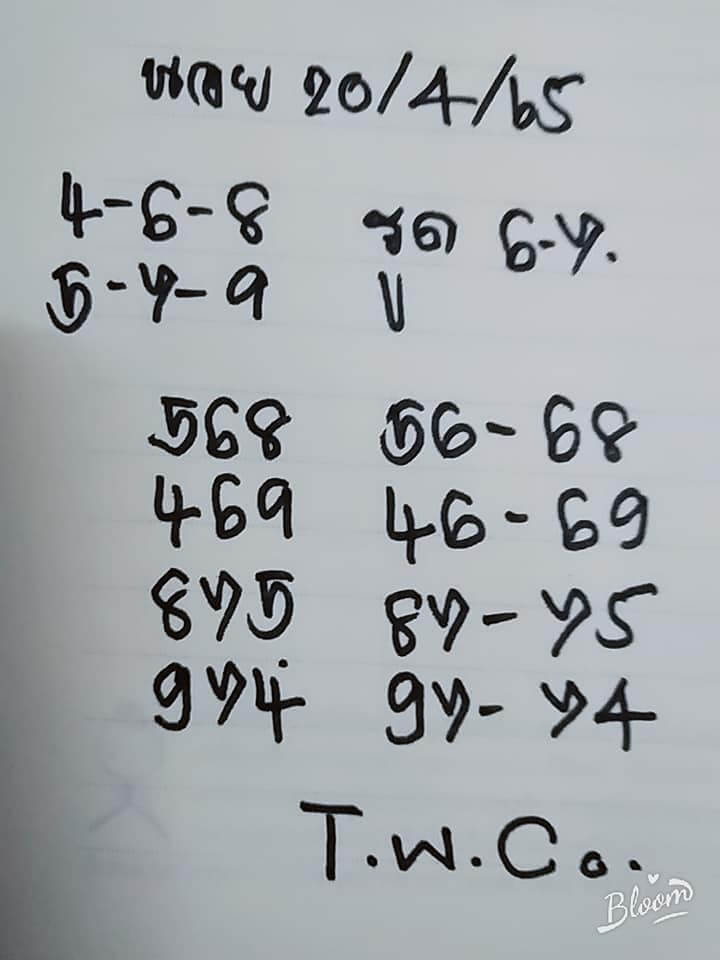 20/4/65
4-6-8 รูด 6-7.
5-7-9
568 56-68
469 46-69
875 87-75
974 97-74
T.W.Co.
Bloom